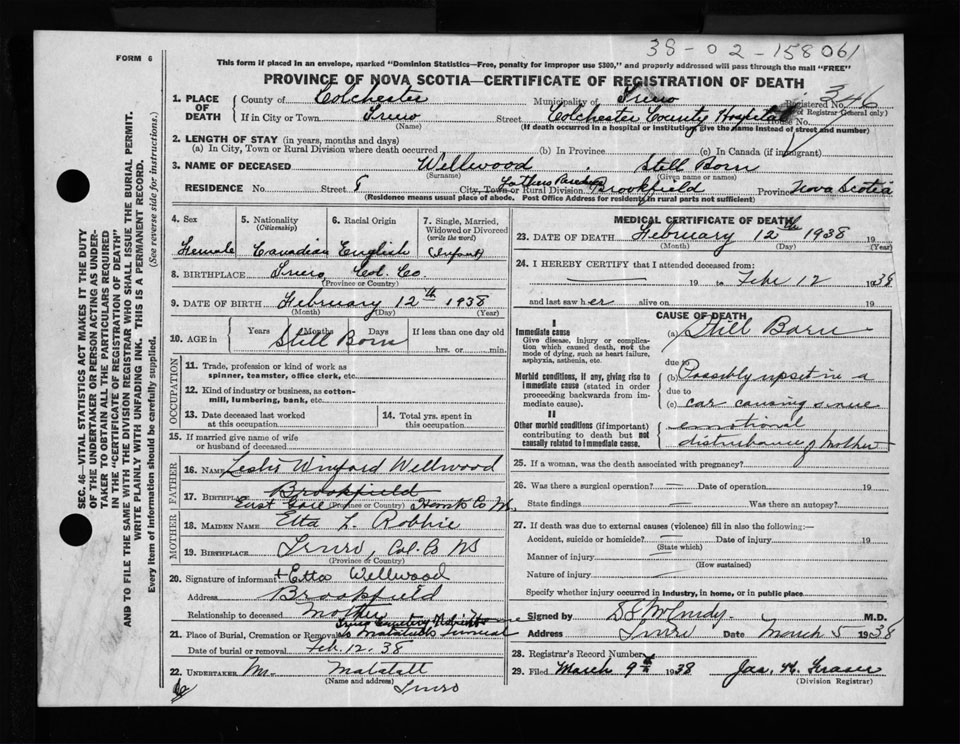 38-02-158061
FORM 6
This form if placed in an envelope, marked "Dominion Statistics—Free, penalty for improper use $300," and properly addressed will pass through the mail "FREE"
PROVINCE OF NOVA SCOTIA—CERTIFICATE OF REGISTRATION OF DEATH
1. PLACE OF DEATH County of Colchester Municipality of Truro Registered No. 346
(of Registrar General only)
If in City or Town Truro Street Colchester County Hospital House No.
(Name) (If death occurred in a hospital or institution, give the name instead of street and number)
2. LENGTH OF STAY (in years, months and days)
(a) In City, Town or Rural Division where death occurred (b) In Province (c) In Canada (if immigrant)
3. NAME OF DECEASED Wellwood Still Born
(Surname) (Given name or names)
RESIDENCE No. Street City, Town or Rural Division Fathers Brookfield Province Nova Scotia
(Residence means usual place of abode. Post Office Address for residents in rural parts not sufficient)
4. Sex 5. Nationality (Citizenship) 6. Racial Origin 7. Single, Married, Widowed or Divorced (write the word)
Female Canadian English (Infant)
8. BIRTHPLACE Truro Col. Co.
(Province or Country)
9. DATE OF BIRTH February 12th 1938
(Month) (Day) (Year)
10. AGE in Years Months Days If less than one day old
Still Born hrs. or min.
OCCUPATION
11. Trade, profession or kind of work as spinner, teamster, office clerk, etc.
12. Kind of industry or business, as cotton-mill, lumbering, bank, etc.
13. Date deceased last worked at this occupation
14. Total yrs. spent in this occupation
15. If married give name of wife or husband of deceased
FATHER
16. NAME Leslie Winford Wellwood
Brookfield
17. BIRTHPLACE East Gore Hants Co NS.
(Province or Country)
MOTHER
18. MAIDEN NAME Etta L. Robbie
19. BIRTHPLACE Truro, Col. Co NS
(Province or Country)
20. Signature of informant + Etta Wellwood
Address Brookfield
Relationship to deceased Mother
Truro Cemetery
21. Place of Burial, Cremation or Removal Funeral
Date of burial or removal Feb. 12. 38
22. UNDERTAKER Mr. Matatall
(Name and address) Truro
MEDICAL CERTIFICATE OF DEATH
23. DATE OF DEATH February 12th 1938
(Month) (Day) (Year)
24. I HEREBY CERTIFY that I attended deceased from:
19 to Feb 12 1938
and last saw her alive on 19
CAUSE OF DEATH
I
Immediate cause
Give disease, injury or complication which caused death, not the mode of dying, such as heart failure, asphyxia, asthenia, etc.
(a) Still Born
due to
Morbid conditions, if any, giving rise to immediate cause (stated in order proceeding backwards from immediate cause).
(b) Possibly upset in a
due to
(c) car causing some
II
Other morbid conditions (if important) contributing to death but not causally related to immediate cause.
emotional
disturbance of mother
25. If a woman, was the death associated with pregnancy?
26. Was there a surgical operation? Date of operation 19
State findings Was there an autopsy?
27. If death was due to external causes (violence) fill in also the following:—
Accident, suicide or homicide? Date of injury 19
(State which)
Manner of injury
(How sustained)
Nature of injury
Specify whether injury occurred in Industry, in home, or in public place
Signed by S S McCurdy M.D.
Address Truro Date March 5 1938
28. Registrar's Record Number
29. Filed March 9th 1938 Jas. H. Fraser
(Division Registrar)
SEC. 46—VITAL STATISTICS ACT MAKES IT THE DUTY
OF THE UNDERTAKER OR PERSON ACTING AS UNDERTAKER
TO OBTAIN ALL THE PARTICULARS REQUIRED
IN THE "CERTIFICATE OF REGISTRATION OF DEATH"
AND TO FILE THE SAME WITH THE DIVISION REGISTRAR WHO SHALL ISSUE THE BURIAL PERMIT.
WRITE PLAINLY WITH UNFADING INK. THIS IS A PERMANENT RECORD.
Every item of Information should be carefully supplied. (See reverse side for instructions.)